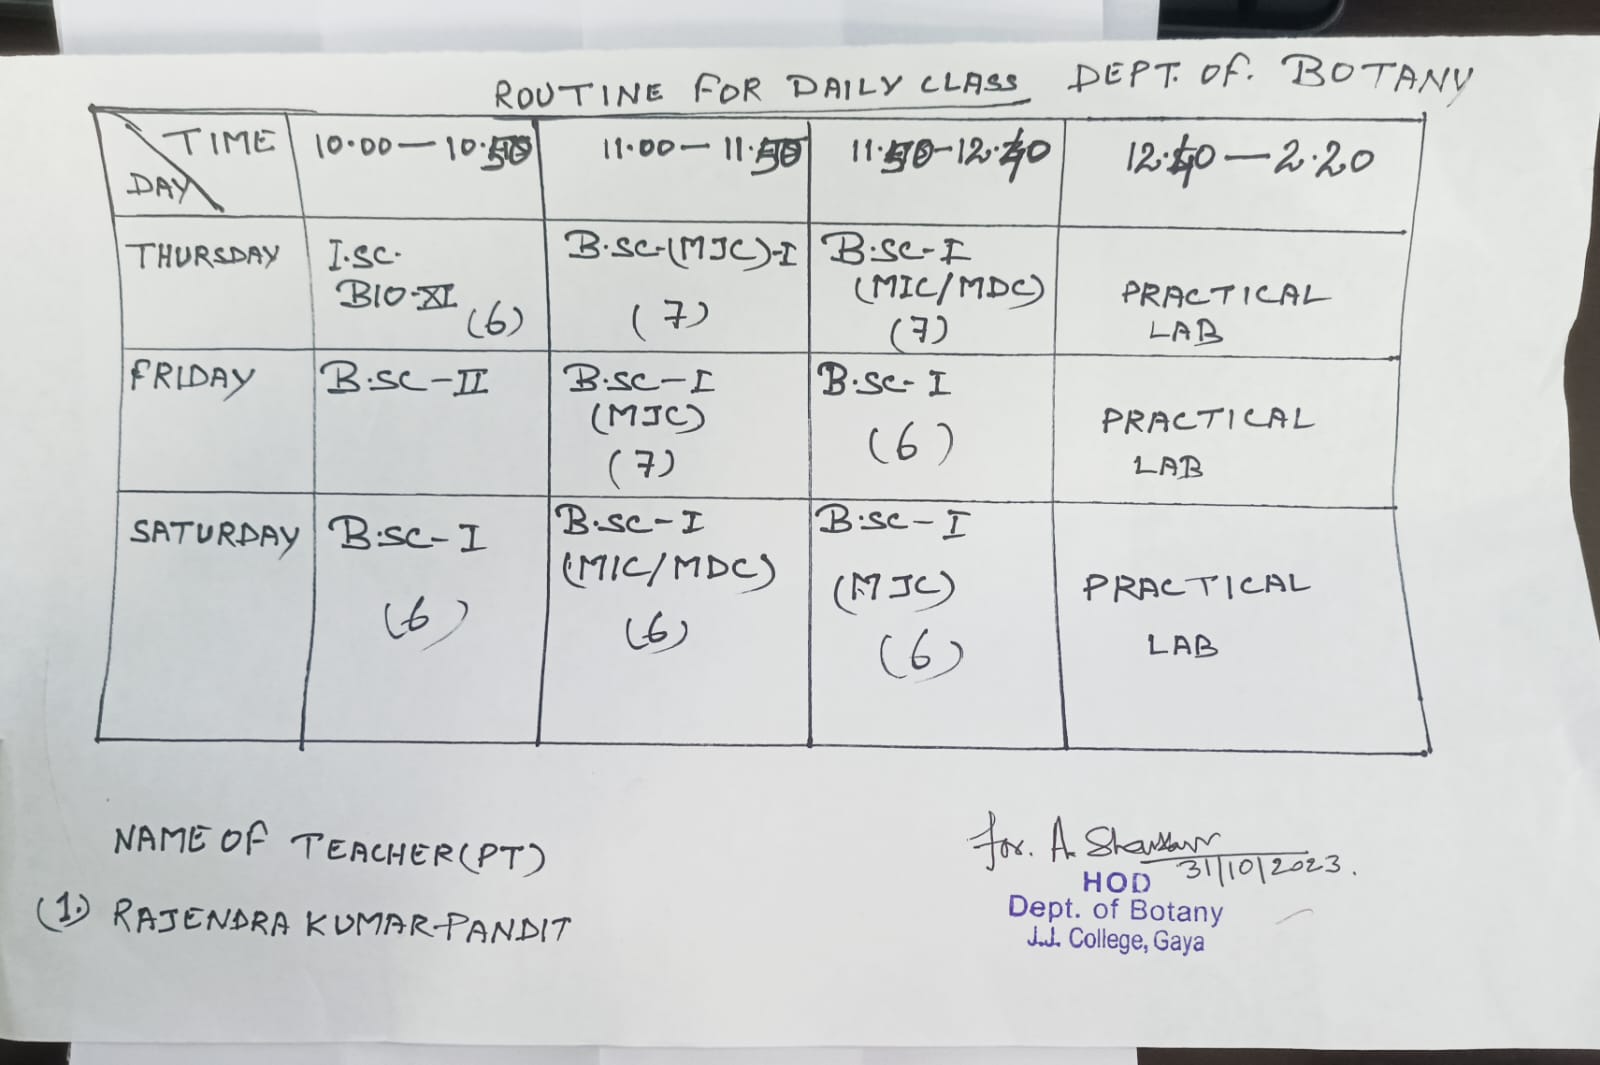 ROUTINE FOR DAILY CLASS DEPT. OF. BOTANY
TIME
DAY
10.00 — 10.50
11.00 — 11.50
11.50 - 12.40
12.40 — 2.20
THURSDAY
I.SC.
BIO-XI
(6)
B.SC-(MJC)-I
(7)
B.SC-I
(MIC/MDC)
(7)
PRACTICAL
LAB
FRIDAY
B.SC-II
B.SC-I
(MJC)
(7)
B.SC-I
(6)
PRACTICAL
LAB
SATURDAY
B.SC-I
(6)
B.SC-I
(MIC/MDC)
(6)
B.SC-I
(MJC)
(6)
PRACTICAL
LAB
NAME OF TEACHER(PT)
(1.) RAJENDRA KUMAR PANDIT
for. A.
31/10/2023.
HOD
Dept. of Botany
J.J. College, Gaya